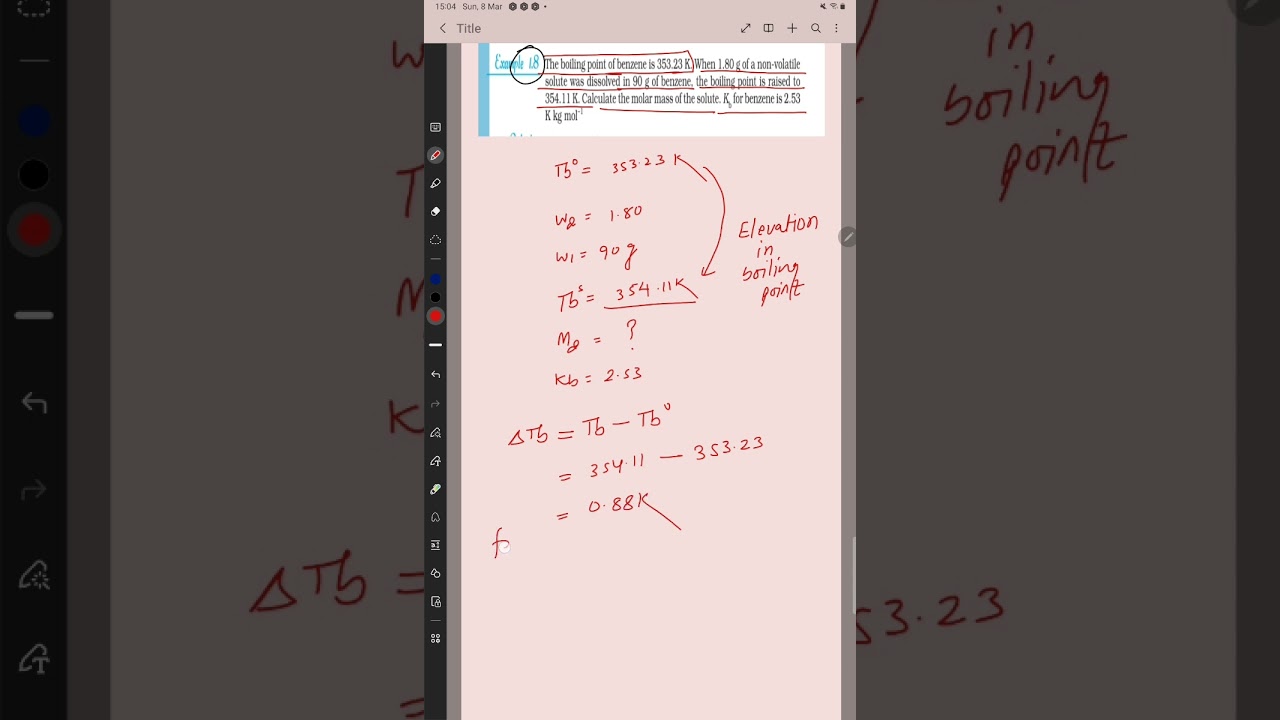 15:04 Sun, 8 Mar
Title
Example 1.8 The boiling point of benzene is 353.23 K. When 1.80 g of a non-volatile
solute was dissolved in 90 g of benzene, the boiling point is raised to
354.11 K. Calculate the molar mass of the solute. Kb for benzene is 2.53
K kg mol–1
Tb° = 353.23 K
W2 = 1.80
W1 = 90 g
Tbs = 354.11K
M2 = ?
Kb = 2.53
Elevation
in
boiling
point
ΔTb = Tb – Tb°
= 354.11 – 353.23
= 0.88K
f
in
boiling
point
ΔTb =
53.23